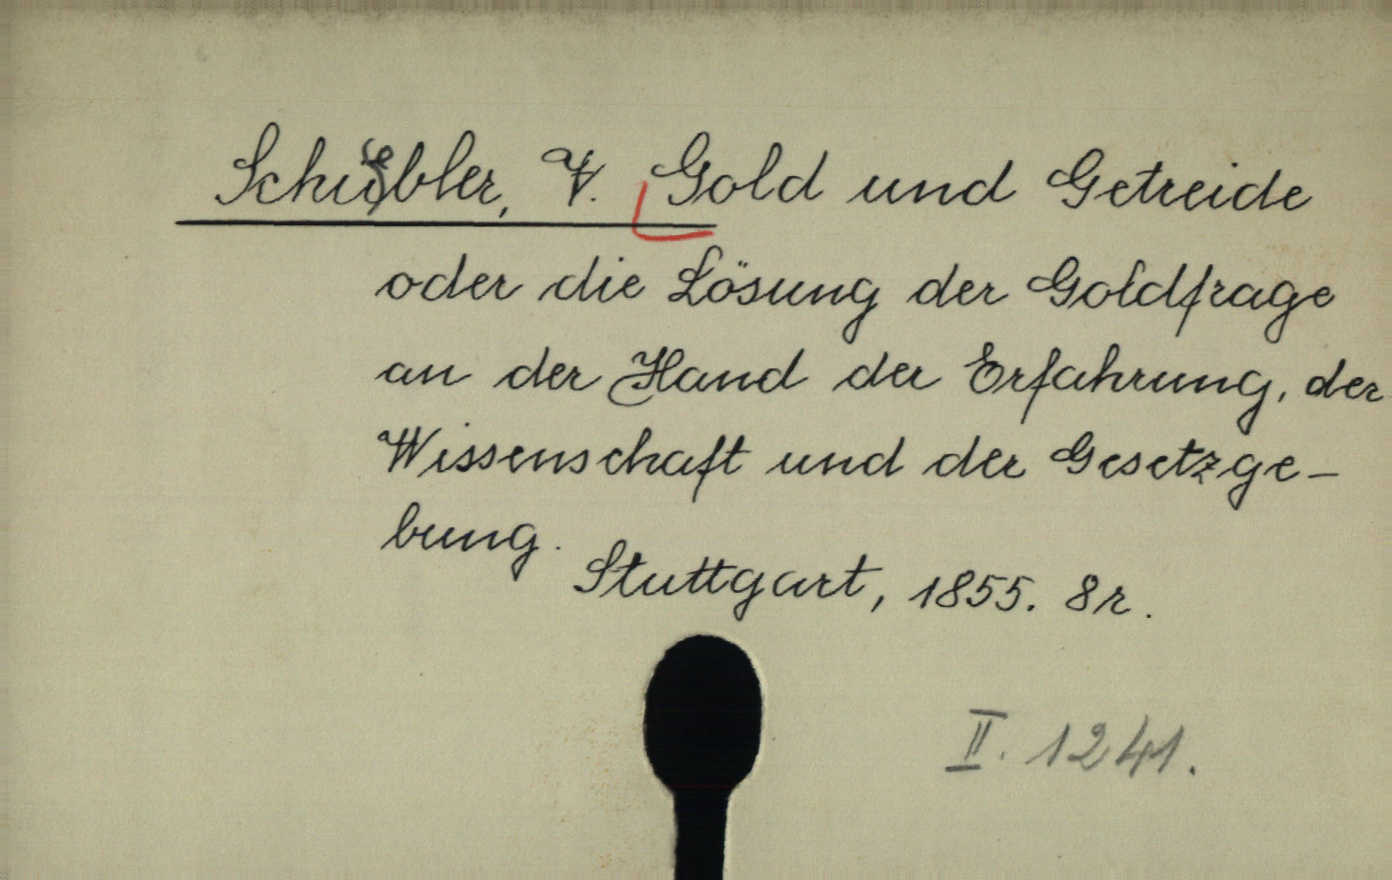 Schübler, V. Gold und Getreide
oder die Lösung der Goldfrage
an der Hand der Erfahrung, der
Wissenschaft und der Gesetzge-
bung.
Stuttgart, 1855. 8r.
II. 1241.